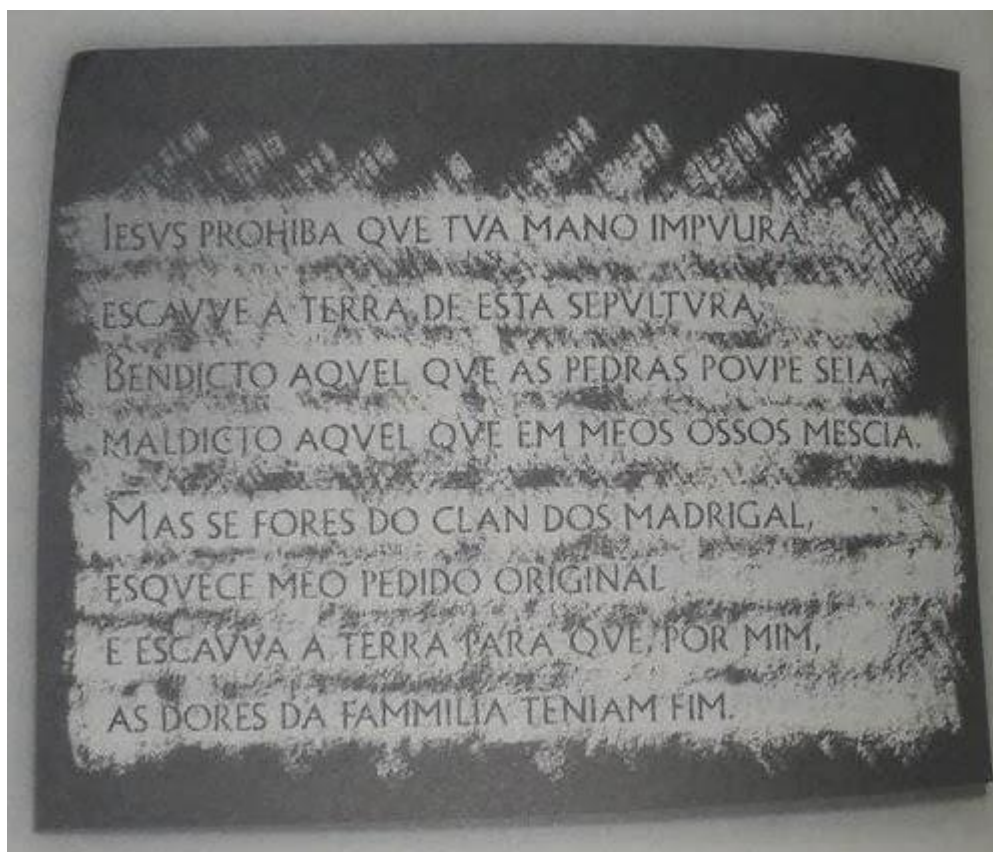 IESVS PROHIBA QVE TVA MANO IMPVURA
ESCAVVE A TERRA DE ESTA SEPVLTVRA,
BENDICTO AQVEL QVE AS PEDRAS POVPE SEIA,
MALDICTO AQVEL QVE EM MEOS OSSOS MESCIA.
MAS SE FORES DO CLAN DOS MADRIGAL,
ESQVECE MEO PEDIDO ORIGINAL
E ESCAVVA A TERRA PARA QVE, POR MIM,
AS DORES DA FAMMILIA TENIAM FIM.